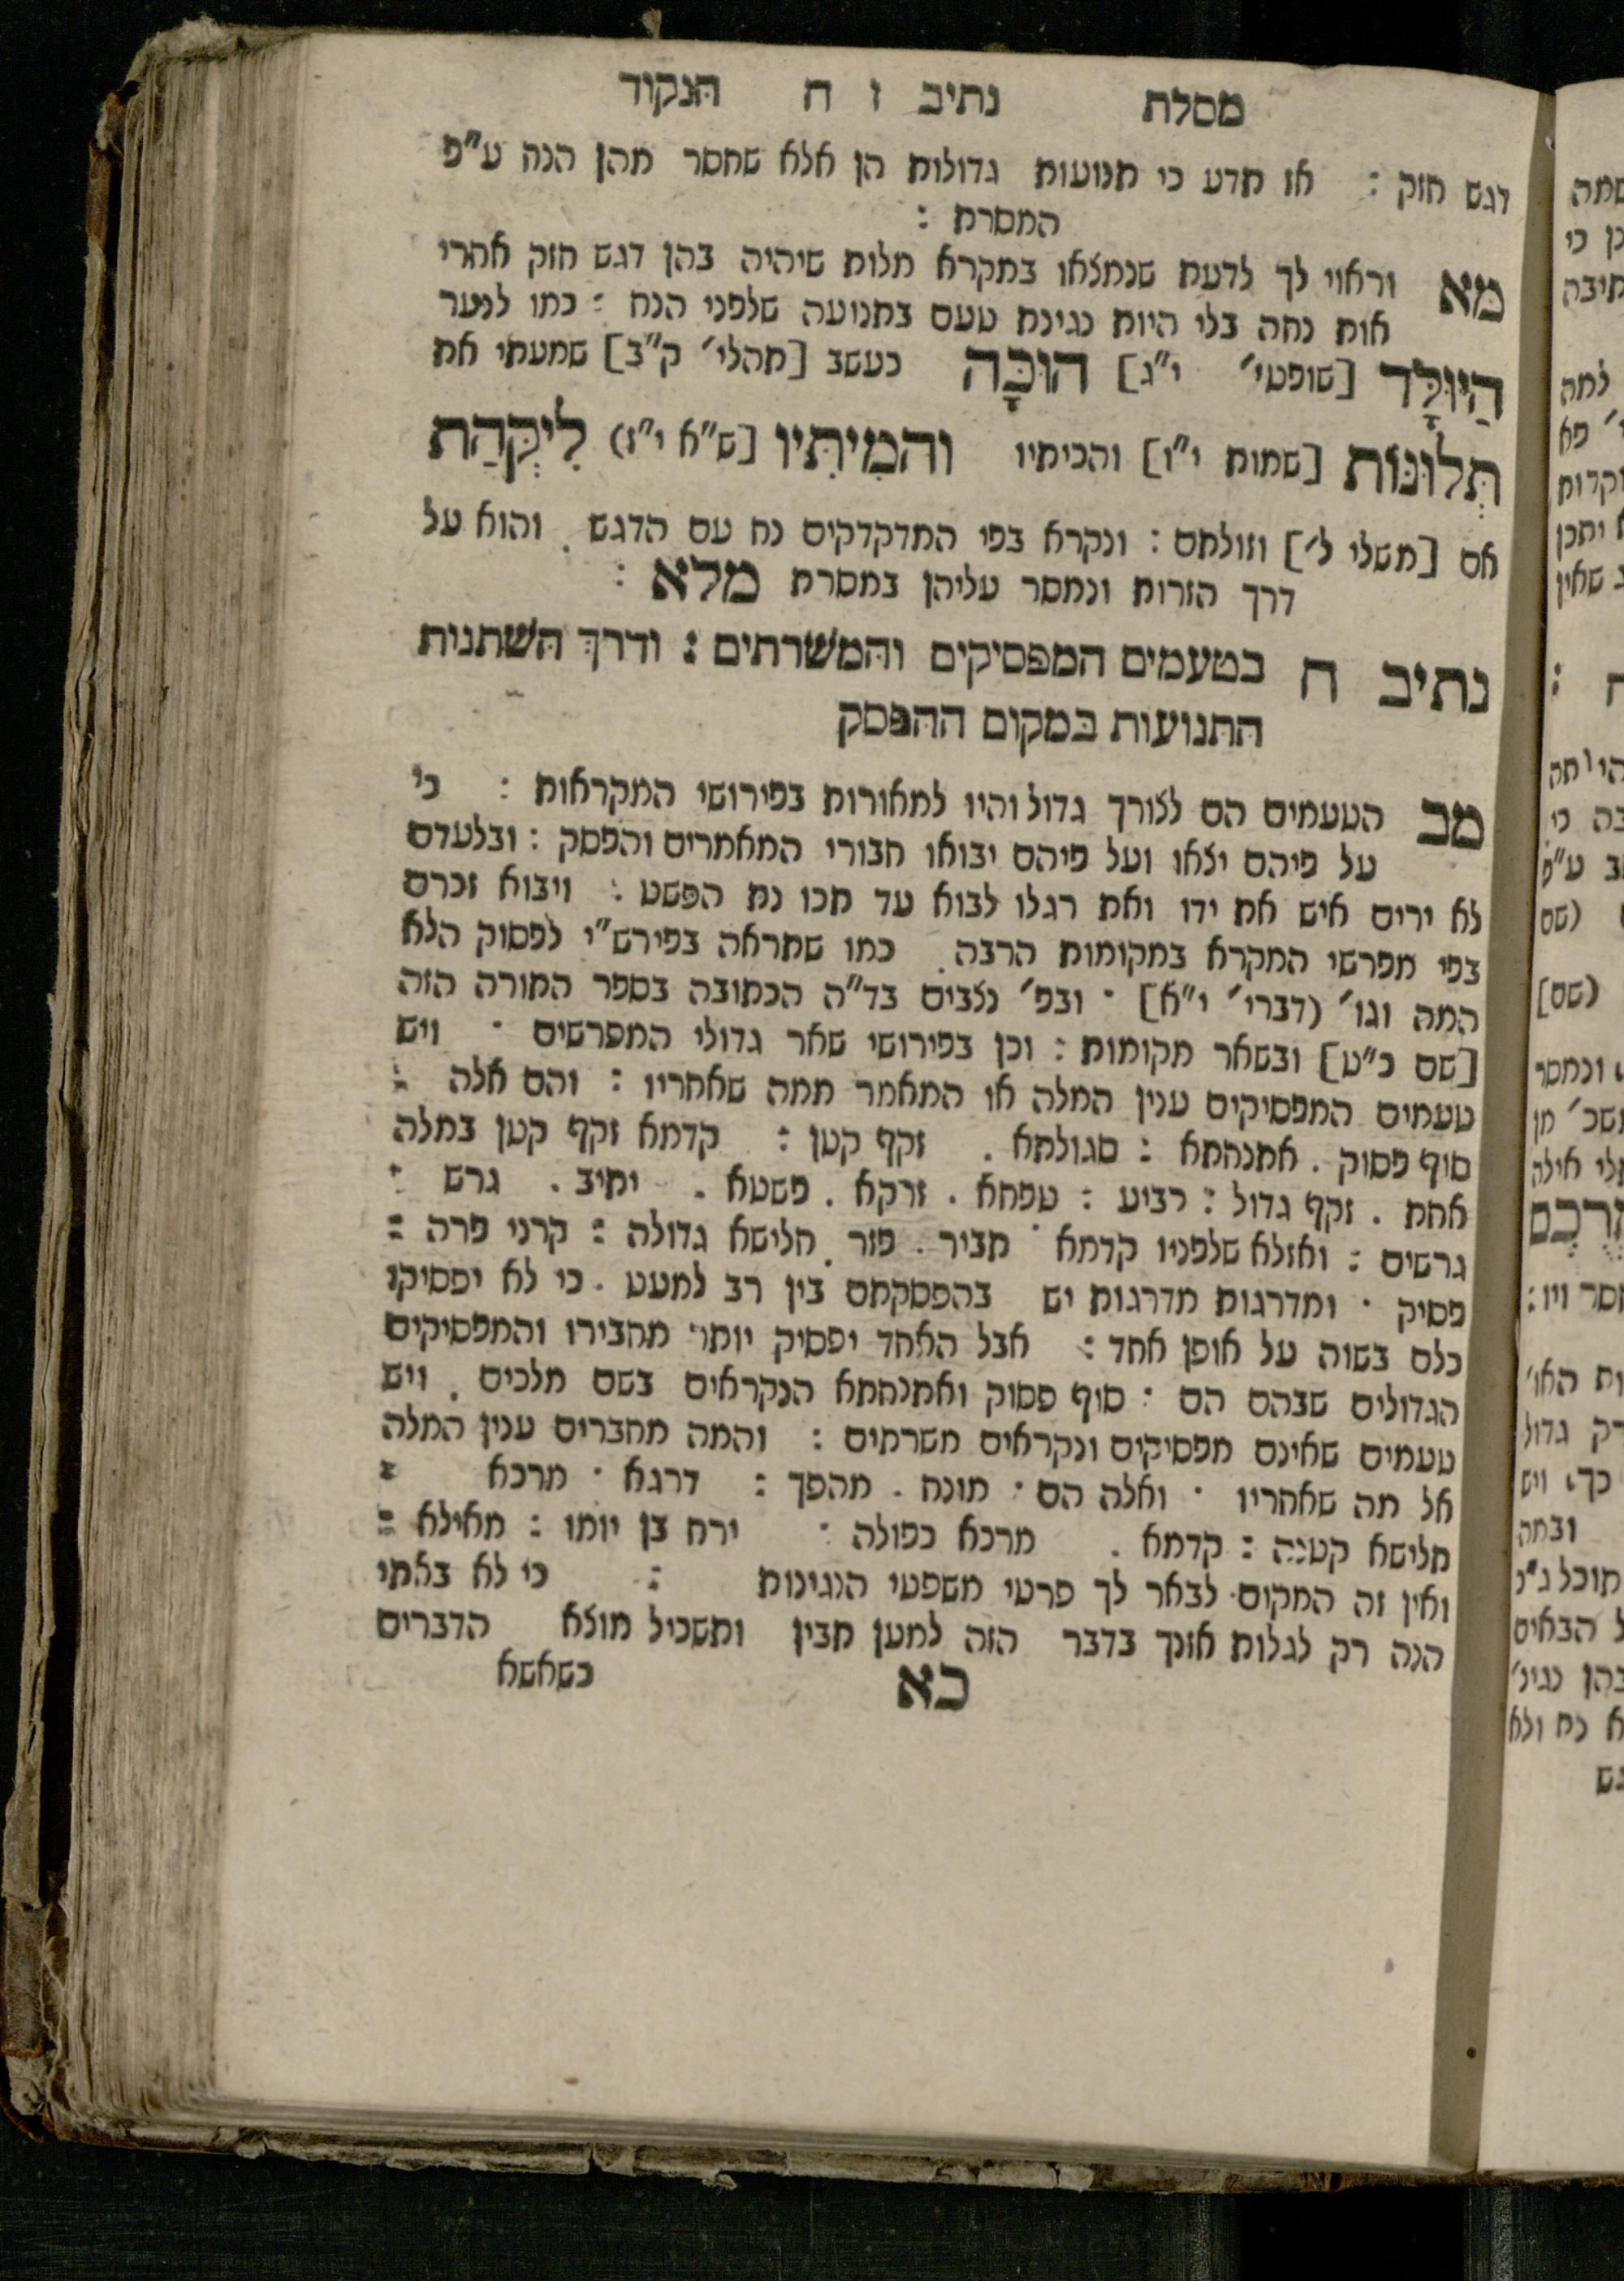 מסלת נתיב ז ח הנקוד
דגש חזק : אז תדע כי תנועות גדולות הן אלא שחסר מהן הנה ע"פ
המסרת :
מא וראוי לך לדעת שנמצאו במקרא מלות שיהיה בהן דגש חזק אחרי
אות נחה בלי היות נגינת טעם בתנועה שלפני הנח : כמו לנער
הַיּוּלָּד [שופטי' י"ג] הוּכָּה כעשב [תהלי' ק"ב] שמעתי את
תְּלוּנּוֹת [שמות י"ו] והכיתיו והמִיתִּיו [ש"א י"ז) לִיקְּהַת
אם [משלי ל'] וזולתם : ונקרא בפי המדקדקים נח עם הדגש . והוא על
דרך הזרות ונמסר עליהן במסרת מלא :
נתיב ח בטעמים המפסיקים והמשרתים : ודרך השתנות
התנועות במקום ההפסק
מב הטעמים הם לצורך גדול והיו למאורות בפירושי המקראות : כי
על פיהם יצאו ועל פיהם יבואו חבורי המאמרים והפסק : ובלעדם
לא ירים איש את ידו ואת רגלו לבוא עד תכונת הפשט : ויבוא זכרם
בפי מפרשי המקרא במקומות הרבה . כמו שתראה בפירש"י לפסוק הלא
המה וגו' (דברי' י"א] · ובפ' נצבים בד"ה הכתובה בספר התורה הזה
[שם כ"ט] ובשאר מקומות : וכן בפירושי שאר גדולי המפרשים · ויש
טעמים המפסיקים ענין המלה או המאמר ממה שאחריו : והם אלה :
סוף פסוק . אתנחתא : סגולתא . זקף קטן : קדמא זקף קטן במלה
אחת . זקף גדול : רביע : טפחא . זרקא . פשטא . יתיב . גרש :
גרשים : ואזלא שלפניו קדמא · תביר . פזר . תלישא גדולה : קרני פרה :
פסיק · ומדרגות מדרגות יש בהפסקתם בין רב למעט . כי לא יפסיקו
כלם בשוה על אופן אחד : אבל האחד יפסיק יותר מחבירו והמפסיקים
הגדולים שבהם הם : סוף פסוק ואתנחתא הנקראים בשם מלכים . ויש
טעמים שאינם מפסיקים ונקראים משרתים : והמה מחברים ענין המלה
אל מה שאחריו · ואלה הם · מונח . מהפך : דרגא · מרכא :
תלישא קטנה : קדמא . מרכא כפולה : ירח בן יומו : מאילא :
ואין זה המקום לבאר לך פרטי משפטי הנגינות : כי לא באתי
הנה רק לגלות אזנך בדבר הזה למען תבין ותשכיל מוצא הדברים
כא כשאשא